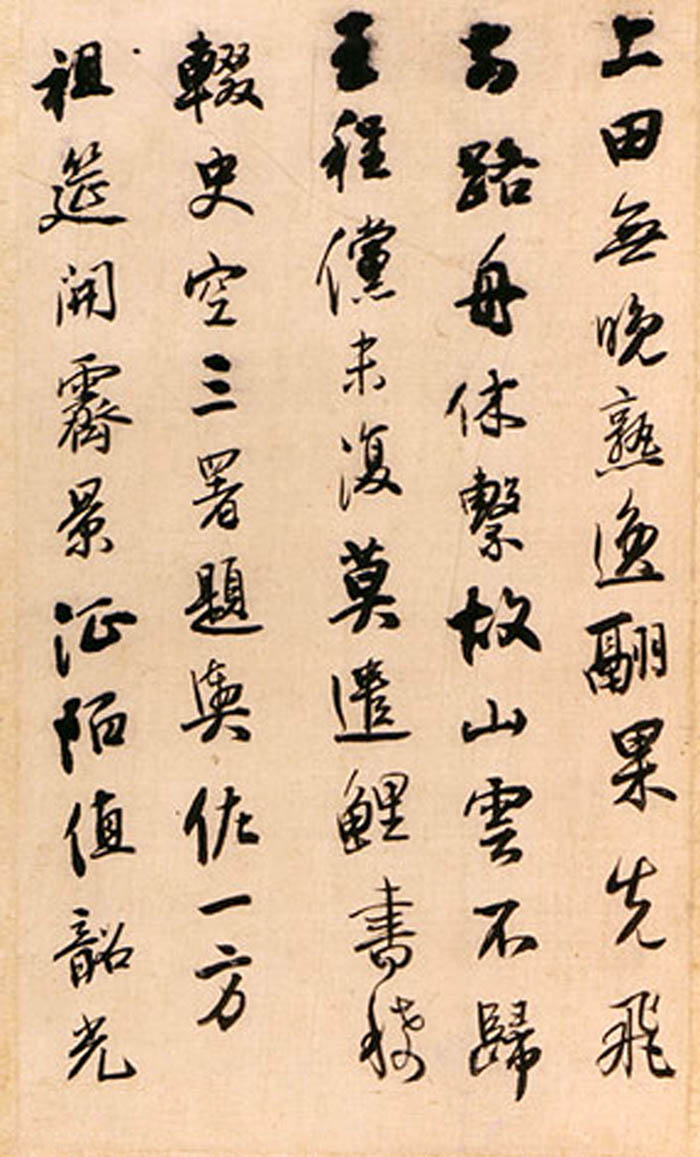 上田無晚熟逸翮果先飛
古路舟休繫故山雲不歸
王程儻未復莫遣鯉書稀
輟史空三署題輿佐一方
祖筵開霽景征陌值韶光